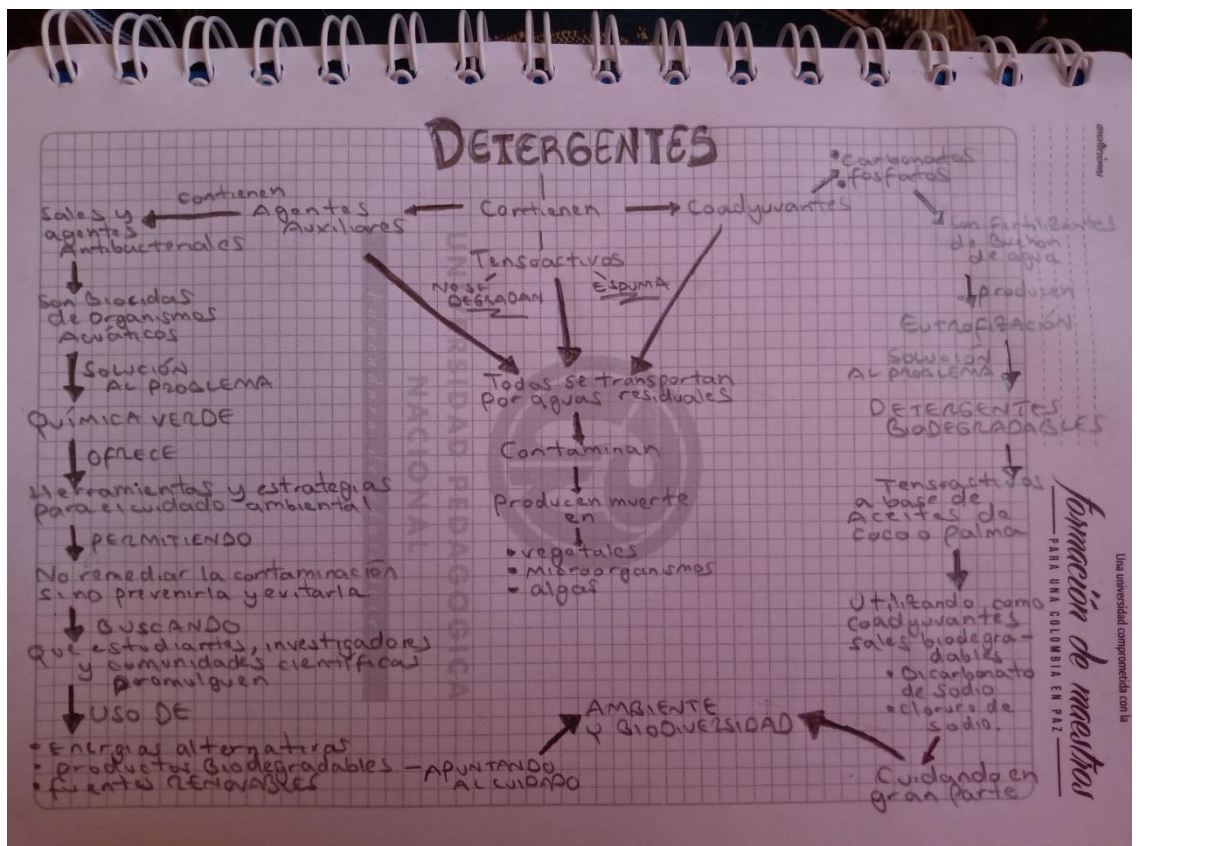 DETERGENTES
Contienen
Agentes
Auxiliares
contienen
Sales y
agentes
Antibacteriales
Son Biocidas
de organismos
Acuáticos
SOLUCIÓN
AL PROBLEMA
QUÍMICA VERDE
OFRECE
Herramientas y estrategias
para el cuidado ambiental
PERMITIENDO
No remediar la contaminación
sino prevenirla y evitarla
BUSCANDO
Que estudiantes, investigadores
y comunidades científicas
promulguen
USO DE
• Energías alternativas
• productos Biodegradables
• fuentes RENOVABLES
APUNTANDO
AL CUIDADO
AMBIENTE
Y BIODIVERSIDAD
Tensoactivos
NO SE
DEGRADAN
ESPUMA
Todos se transportan
por aguas residuales
Contaminan
Producen muerte
en
• vegetales
• Microorganismos
• algas
Coadyuvantes
• carbonatos
• fosfatos
Son Fertilizantes
de Buchón
de agua
producen
Eutrofización
SOLUCIÓN
AL PROBLEMA
DETERGENTES
BIODEGRADABLES
Tensoactivos
a base de
Aceites de
coco o palma
Utilizando como
coadyuvantes
sales biodegra-
dables
• Bicarbonato
de sodio
• cloruro de
sodio.
Cuidando en
gran parte
UNIVERSIDAD PEDAGOGICA
NACIONAL
formación de maestros
PARA UNA COLOMBIA EN PAZ
Una universidad comprometida con la